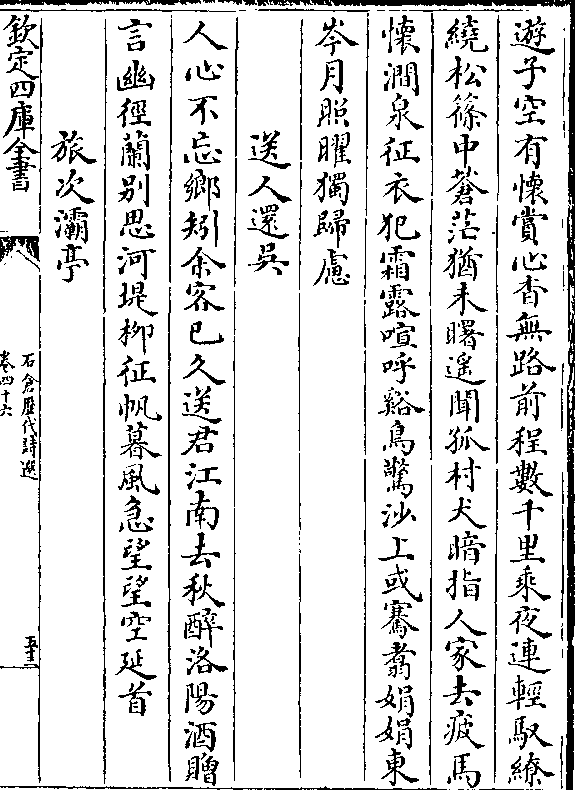 遊子空有懷賞心杳無路前程數千里乘夜連輕馭繚
繞松篠中蒼茫猶未曙遙聞孤村犬暗指人家去疲馬
懷澗泉征衣犯霜露喧呼谿鳥驚沙上或騫翥娟娟東
岑月照曜獨歸慮
送人還吳
人心不忘鄉矧余客已久送君江南去秋醉洛陽酒贈
言幽徑蘭別思河堤柳征帆暮風急望望空延首
旅次灞亭
欽定四庫全書
石倉歷代詩選
卷四十六